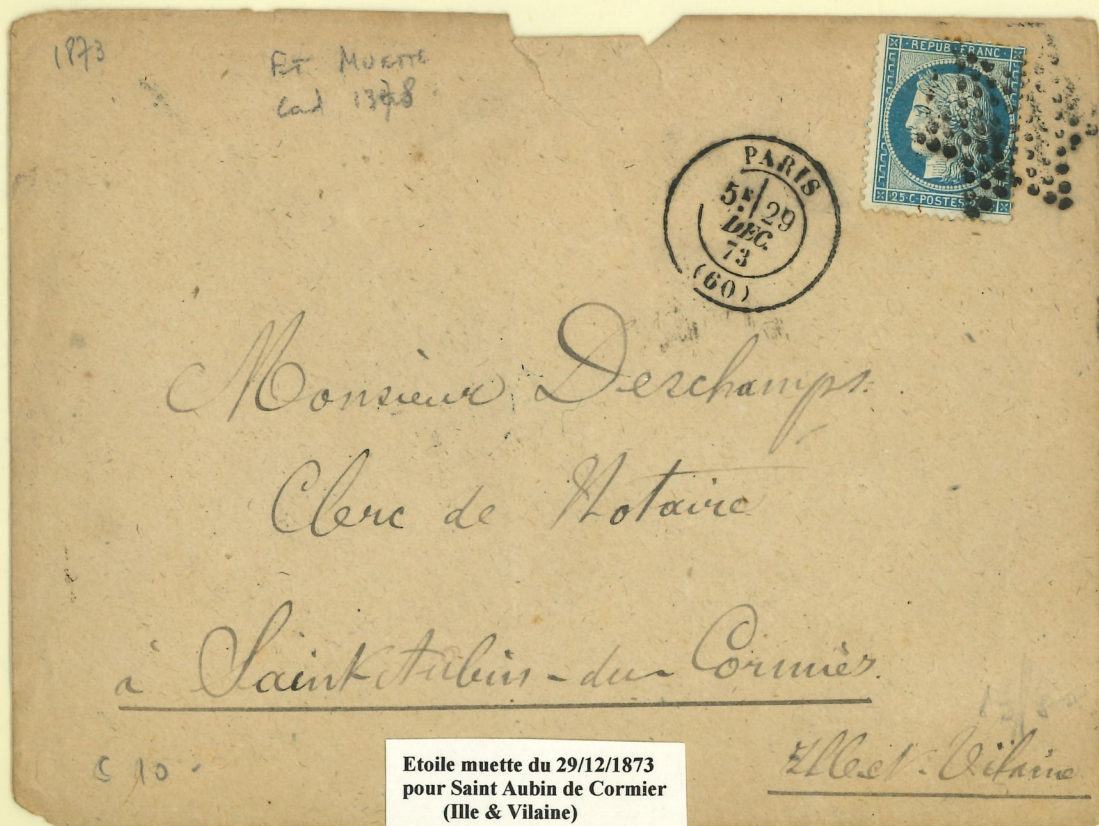 1873
Et Muette
Cad 1348
REPUB·FRANC
25·C·POSTES
PARIS
5E 29
DEC.
73
(60)
Monsieur Deschamps
Clerc de Notaire
à Saint Aubin-du-Cormier
Ille-et-Vilaine
10
Etoile muette du 29/12/1873
pour Saint Aubin de Cormier
(Ille & Vilaine)